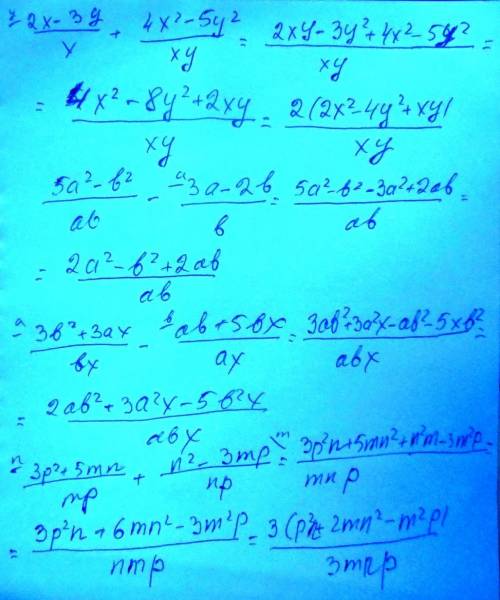 y⁻ (2x-3y)/x + (4x²-5y²)/xy = (2xy-3y²+4x²-5y²)/xy =
= (4x²-8y²+2xy)/xy = 2(2x²-4y²+xy)/xy
(5a²-b²)/ab - a⁻ (3a-2b)/b = (5a²-b²-3a²+2ab)/ab =
= (2a²-b²+2ab)/ab
a⁻ (3b²+3ax)/bx - b⁻ (ab+5bx)/ax = (3ab²+3a²x-ab²-5xb²)/abx =
= (2ab²+3a²x-5b²x)/abx
n⁻ (3p²+5mn)/mp + (n²-3mp)/np \m = (3p²n+5mn²+n²m-3m²p)/mnp =
= (3p²n+6mn²-3m²p)/nmp = 3(p²n+2mn²-m²p)/3mnp